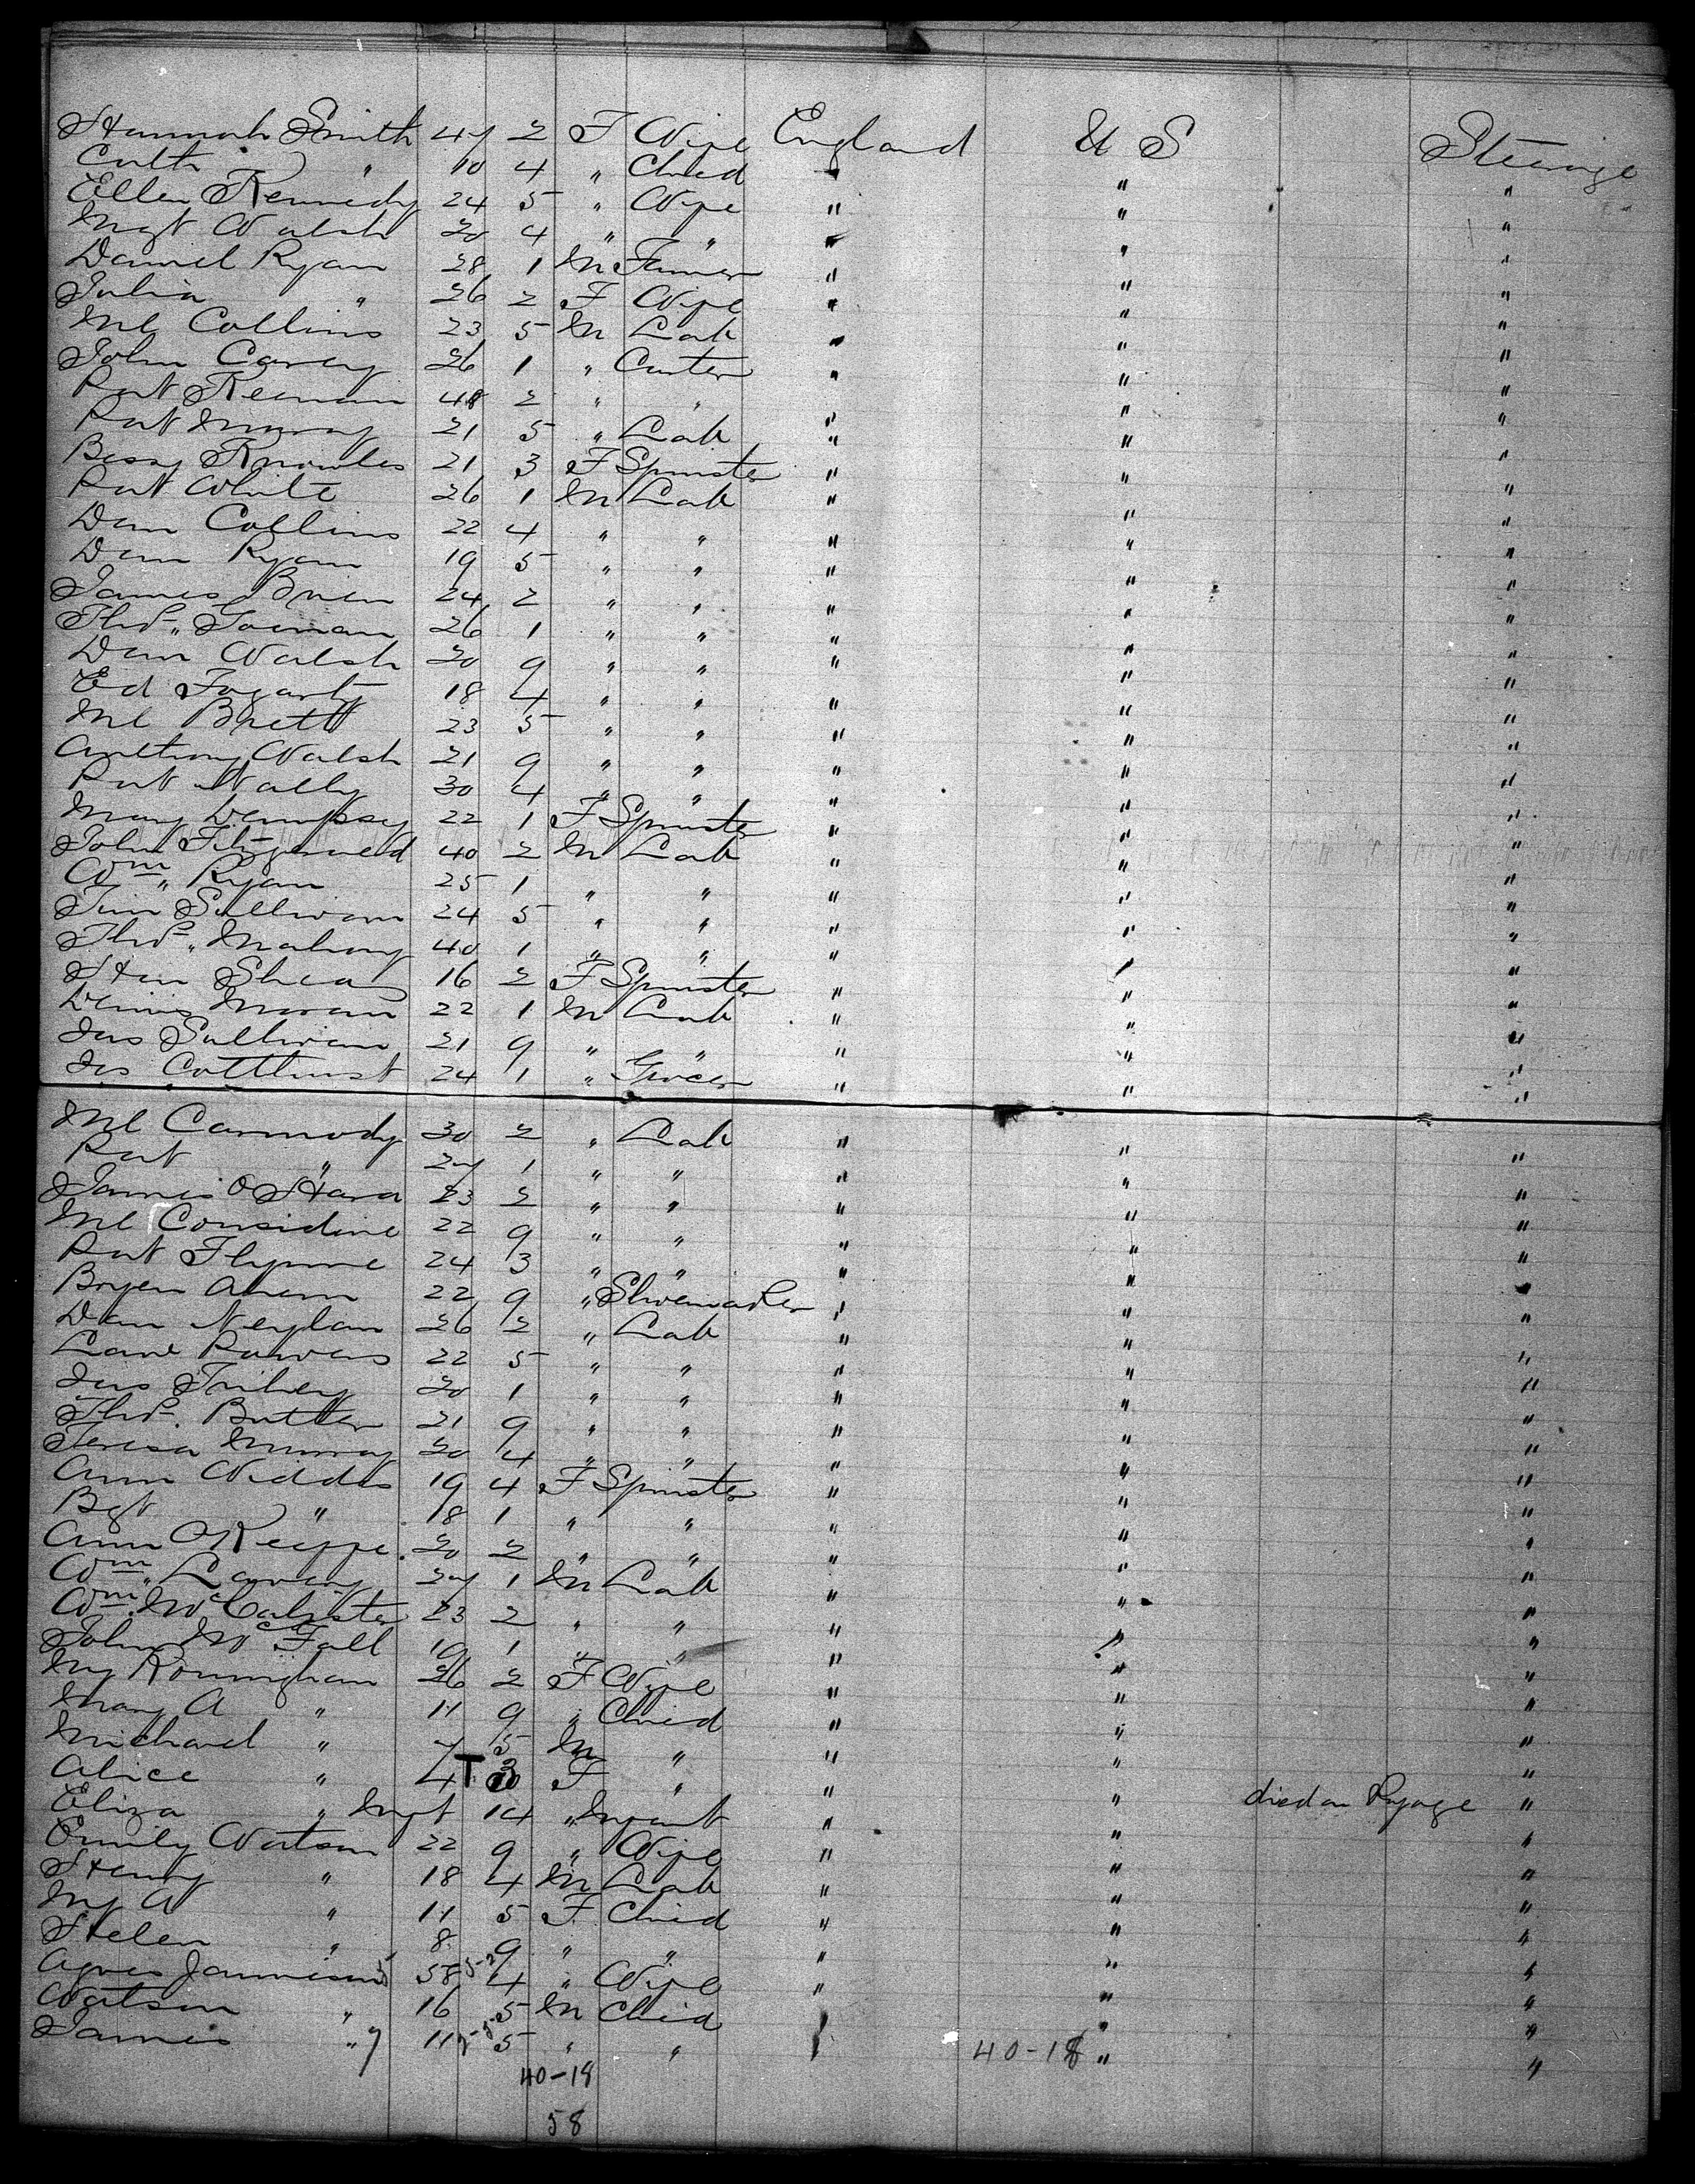 Hannah Smith 47 2 F Wife England U S Steerage
Cath " 10 4 " Child " " "
Ellen Kennedy 24 5 " Wife " " "
Mgt Walsh 20 4 " " " " "
Daniel Ryan 28 1 M Farmer " " "
Julia " 26 2 F Wife " " "
Ml Collins 23 5 M Lab " " "
John Carey 26 1 " Carter " " "
Pat Keenan 48 2 " " " " "
Pat Murray 21 5 " Lab " " "
Bessy Knowles 21 3 F Spinster " " "
Pat White 26 1 M Lab " " "
Dan Collins 22 4 " " " " "
Dan Ryan 19 5 " " " " "
James Brien 24 2 " " " " "
Thos 26 1 " " " " "
Dan Walsh 20 9 " " " " "
Ed Fogarty 18 4 " " " " "
Ml Brett 23 5 " " " " "
Anthony Walsh 21 9 " " " " "
Pat Nally 30 4 " " " " "
Mary Dempsey 22 1 F Spinster " " "
John Fitzgerald 40 2 M Lab " " "
Wm Ryan 25 1 " " " " "
Tim Sullivan 24 5 " " " " "
Thos Mahony 40 1 " " " " "
Han Shea 16 2 F Spinster " " "
Dennis Moran 22 1 M Lab " " "
Jas Sullivan 21 9 " " " " "
Jas 24 1 " Grocer " " "
Ml Carmody 30 2 " Lab " " "
Pat " 27 1 " " " " "
James O Hara 23 2 " " " " "
Ml Considine 22 9 " " " " "
Pat Flynne 24 3 " " " " "
Bryen Ahern 22 9 " Shoemaker " " "
Dan Neylan 26 2 " Lab " " "
Lawe Powers 22 5 " " " " "
Jas 20 1 " " " " "
Thos. Butler 21 9 " " " " "
Teresa Murray 20 4 " " " " "
Ann Widdis 19 4 F Spinster " " "
Bgt " 18 1 " " " " "
Ann OKeeffe 20 2 " " " " "
Wm 27 1 M Lab " " "
Wm McCalister 23 2 " " " " "
John McFall 19 1 " " " " "
My Konningham 26 2 F Wife " " "
Mary A " 11 9 " Child " " "
Michael " 7 5 M " " " "
Alice " 4 T F " " " "
Eliza " Inft 14 " Infant " " died on Voyage "
Emily Watson 22 9 " Wife " " "
Henry " 18 4 M Lab " " "
My A " 11 5 F Child " " "
Helen " 8 9 " " " " "
Agnes Jamieson 58 4 " Wife " " "
Watson " 16 5 M Child " " "
James " 11 5 " " " " "
40-18 40-18
58